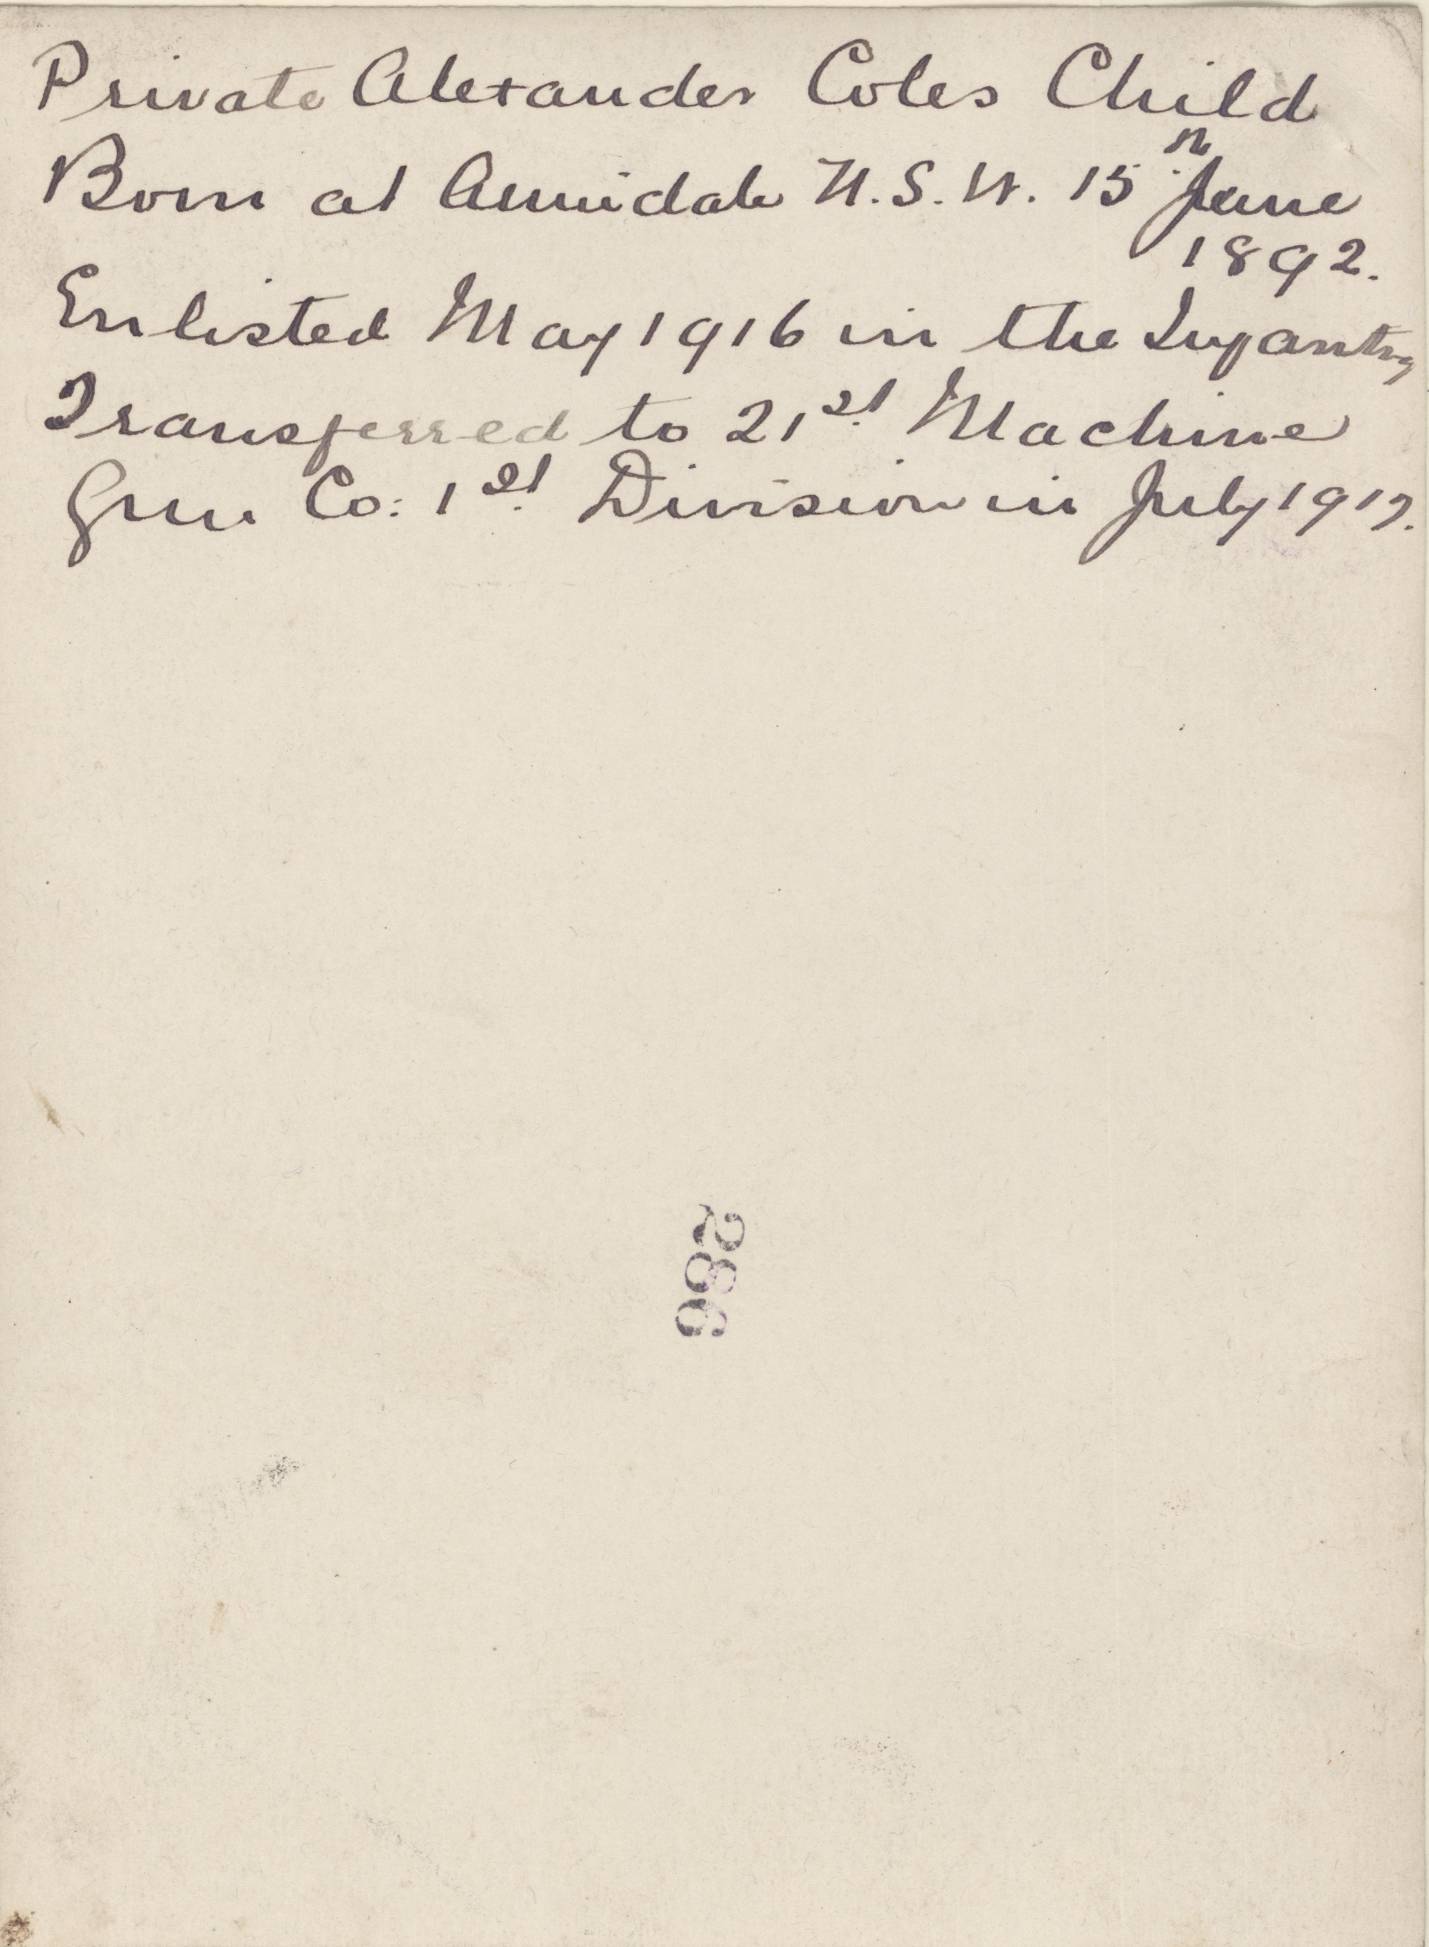 Private Alexander Coles Child
Born at Armidale N.S.W. 15th June
1892.
Enlisted May 1916 in the Infantry
Transferred to 21st Machine
Gun Co: 1st Division in July 1917.
286